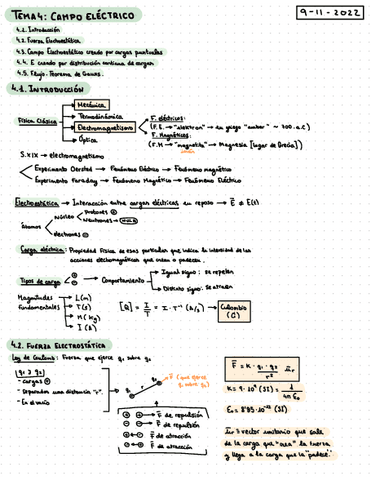 TEMA 4: CAMPO ELÉCTRICO
9-11-2022
4.1. Introducción
4.2. Fuerza Electrostática
4.3. Campo Electrostático creado por cargas puntuales
4.4. E creado por distribución continua de cargas
4.5. Flujo. Teorema de Gauss.
4.1. INTRODUCCIÓN
Física Clásica
Mecánica
Termodinámica
Electromagnetismo
Óptica
F. eléctricos:
(F.E. → "elektron" → en griego "ámbar" ~ 700 a.C)
F. Magnéticos:
(F.M → "magnetita" → Magnesia [lugar de Grecia])
S.XIX → electromagnetismo
Experimento Oersted → Fenómeno Eléctrico → Fenómeno magnético
Experimento Faraday → Fenómeno Magnético → Fenómeno Eléctrico
Electrostática → Interacción entre cargas eléctricas en reposo → E ≠ E(t)
Átomos
Núcleo
Protones ⊕
Neutrones →
electrones ⊖
Carga eléctrica: Propiedad física de esas partículas que indica la intensidad de las
acciones electromagnéticas que crean o padecen.
Tipos de carga
⊕
⊖
Comportamiento
Igual signo: Se repelen
Distinto signo: Se atraen
Magnitudes fundamentales
L (m)
T (s)
M (kg)
I (A)
[Q] = I · T
Culombio
(C)
4.2. FUERZA ELECTROSTÁTICA
Ley de Coulomb: Fuerza que ejerce q₁ sobre q₂
q₁ y q₂
- cargas ⊕
- Separadas una distancia "r".
- En el vacío
q₁
r
q₂
F (que ejerce
q₁ sobre q₂)
⊕ ⊕ → F de repulsión
⊖ ⊖ → F de repulsión
⊕ ⊖ → F de atracción
⊖ ⊕ → F de atracción
F = K · q₁ · q₂ / r² · ur
K = 9·10⁹ (SI) = 1 / 4π ε₀
ε₀ = 8'85·10⁻¹² (SI)
ur = vector unitario que sale
de la carga que "crea" la fuerza
y llega a la carga que la "padece".